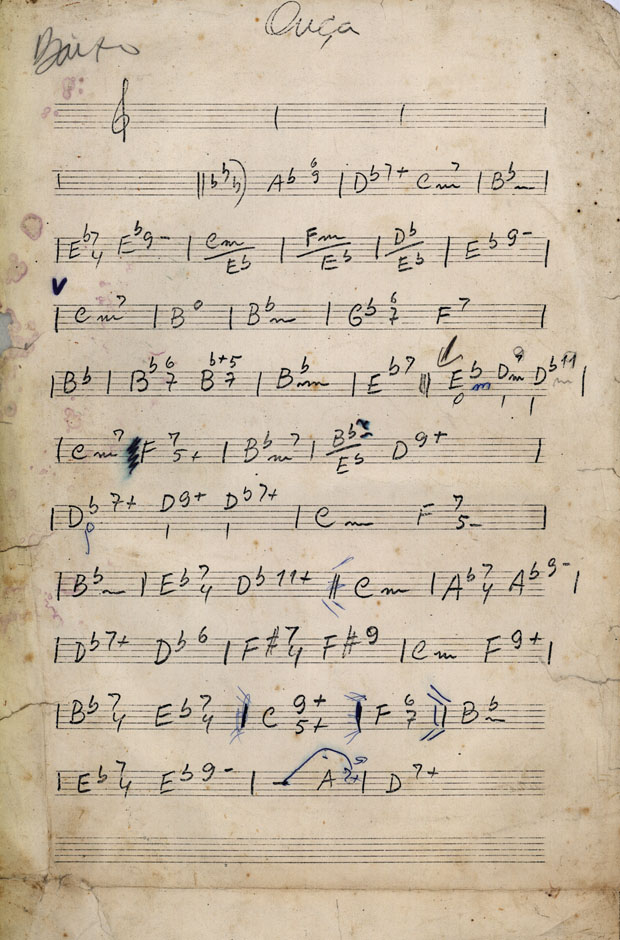 Ouça
Baixo
Ab 6 9 | Db7+ Cm7 | Bbm |
| Eb7 4 Eb9- | Cm/Eb | Fm/Eb | Db/Eb | Eb9- |
| Cm7 | Bo | Bbm | Gb 6 7 F7 |
| Bb | Bb 6 7 B b+5 7 | Bbm | Eb7 || Ebm Dm Db11 |
| Cm7 F 7 5+ | Bbm7 | Bb/Eb D9+ |
| Db7+ D9+ Db7+ | Cm F 7 5- |
| Bbm | Eb7 4 Db11+ || Cm | Ab7 4 Ab9- |
| Db7+ Db6 | F#7 4 F#9 | Cm F9+ |
| Bb7 4 Eb7 4 | C 9+ 5+ | F 6 7 || Bbm
| Eb7 4 Eb9- | A | D7+